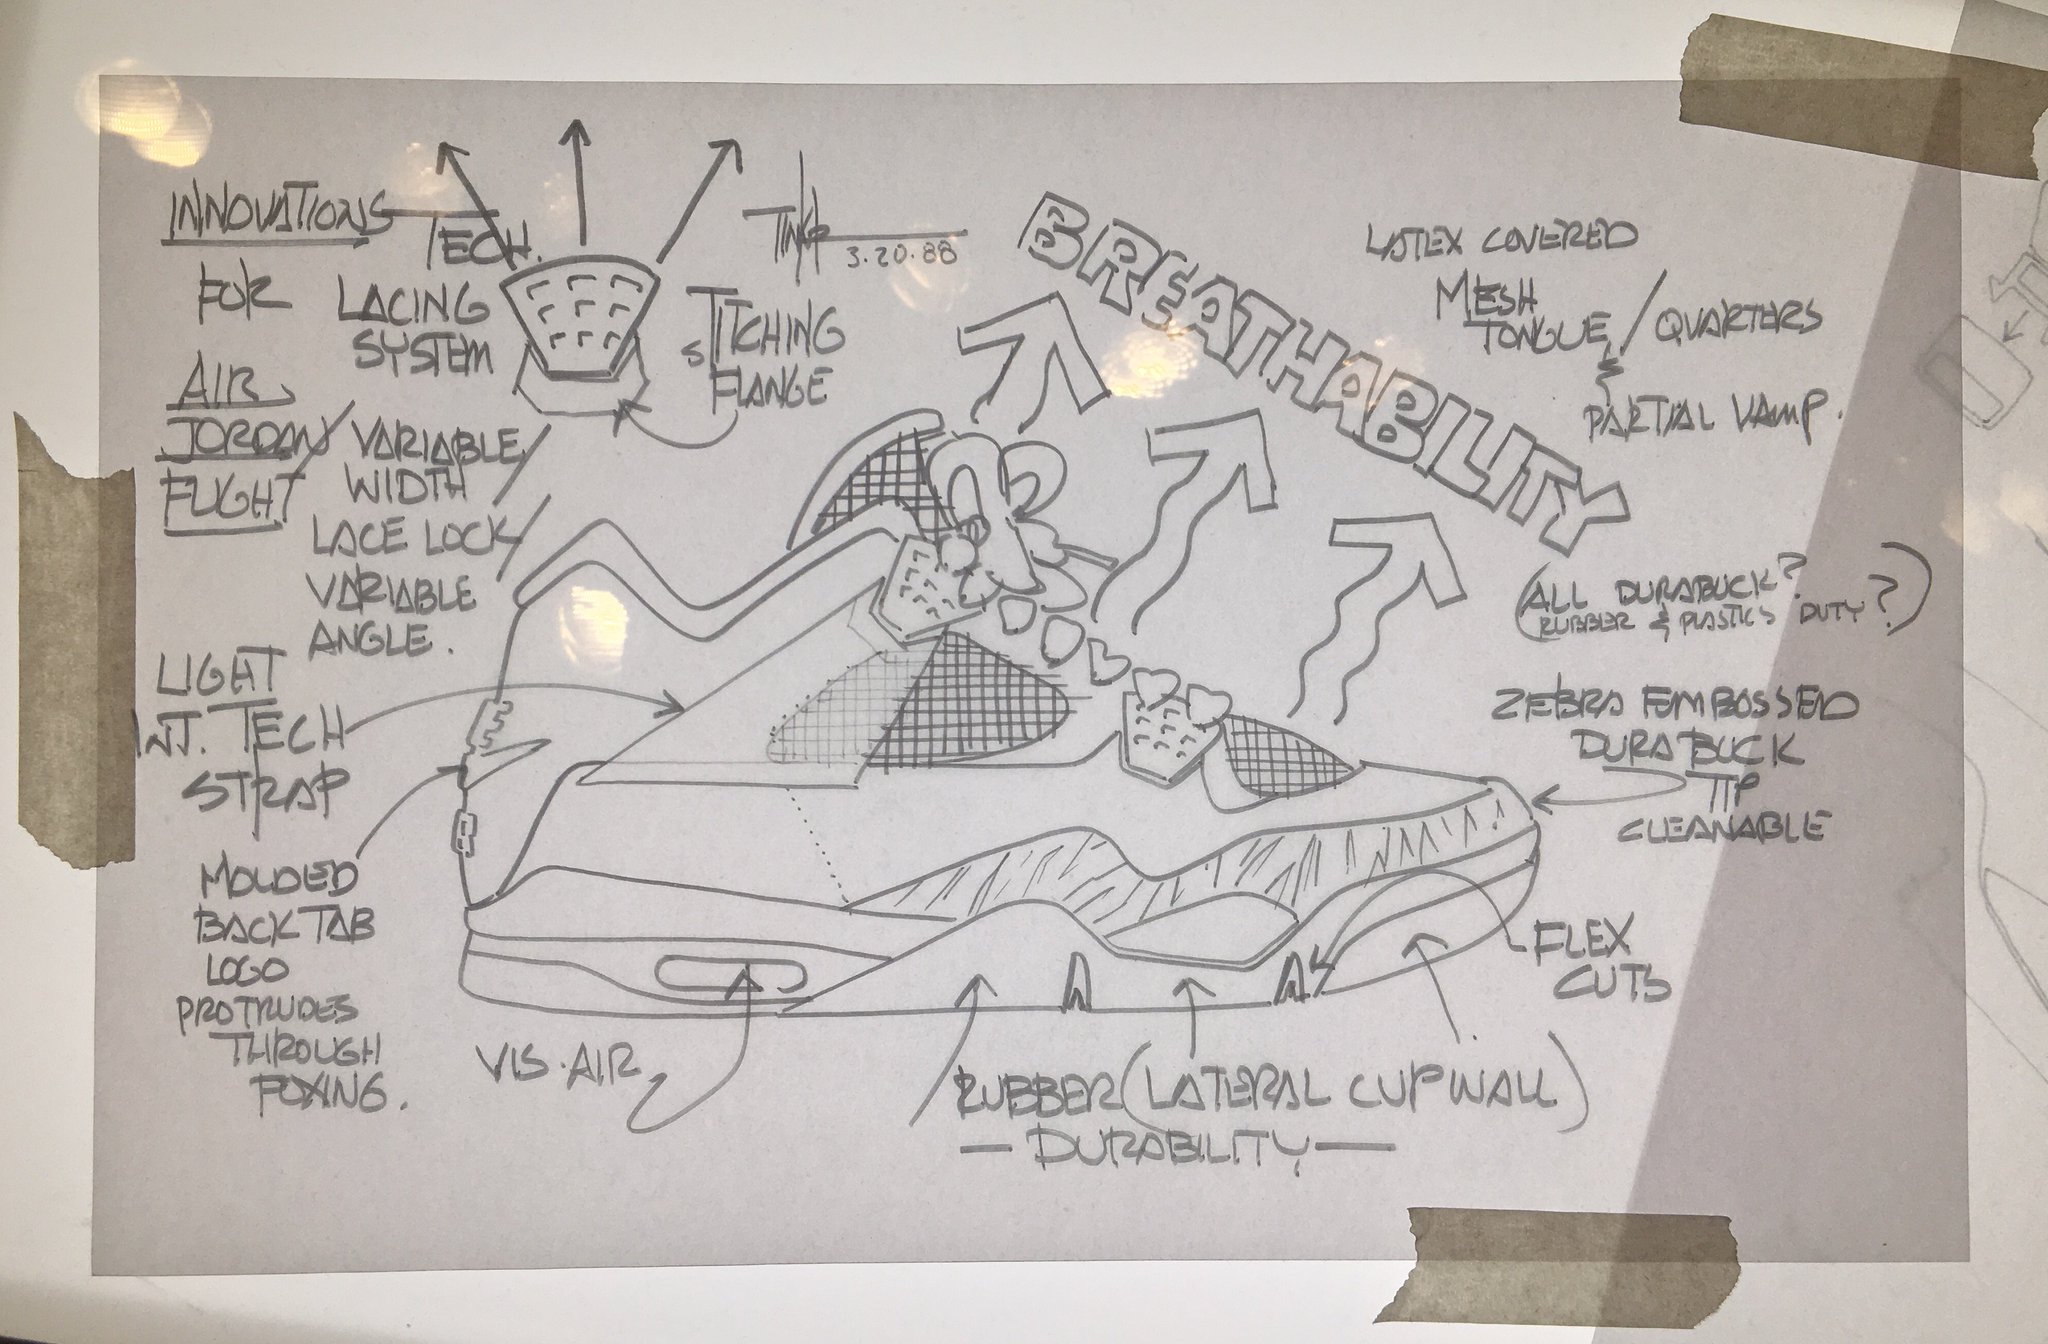 INNOVATIONS
FOR
AIR
JORDAN/
FLIGHT
TECH.
LACING
SYSTEM
VARIABLE
WIDTH
LACE LOCK
VARIABLE
ANGLE.
STITCHING
FLANGE
3.20.88
BREATHABILITY
LATEX COVERED
MESH
TONGUE / QUARTERS
PARTIAL VAMP.
(ALL DURABUCK?
RUBBER & PLASTICS DUTY?)
ZEBRA EMBOSSED
DURABUCK
TIP
CLEANABLE
LIGHT
INJ. TECH
STRAP
MOLDED
BACK TAB
LOGO
PROTRUDES
THROUGH
FOXING.
FLEX
CUTS
VIS. AIR
RUBBER (LATERAL CUPWALL)
— DURABILITY —